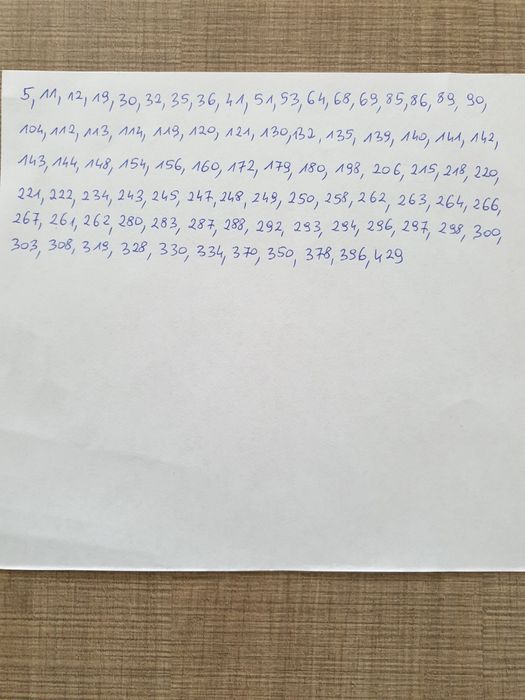 5, 11, 12, 19, 30, 32, 35, 36, 41, 51, 53, 64, 68, 69, 85, 86, 89, 90,
104, 112, 113, 114, 119, 120, 121, 130, 132, 135, 139, 140, 141, 142,
143, 144, 148, 154, 156, 160, 172, 179, 180, 198, 206, 215, 218, 220,
221, 222, 234, 243, 245, 247, 248, 249, 250, 258, 262, 263, 264, 266,
267, 261, 262, 280, 283, 287, 288, 292, 293, 294, 296, 297, 298, 300,
303, 308, 319, 328, 330, 334, 370, 350, 378, 396, 429